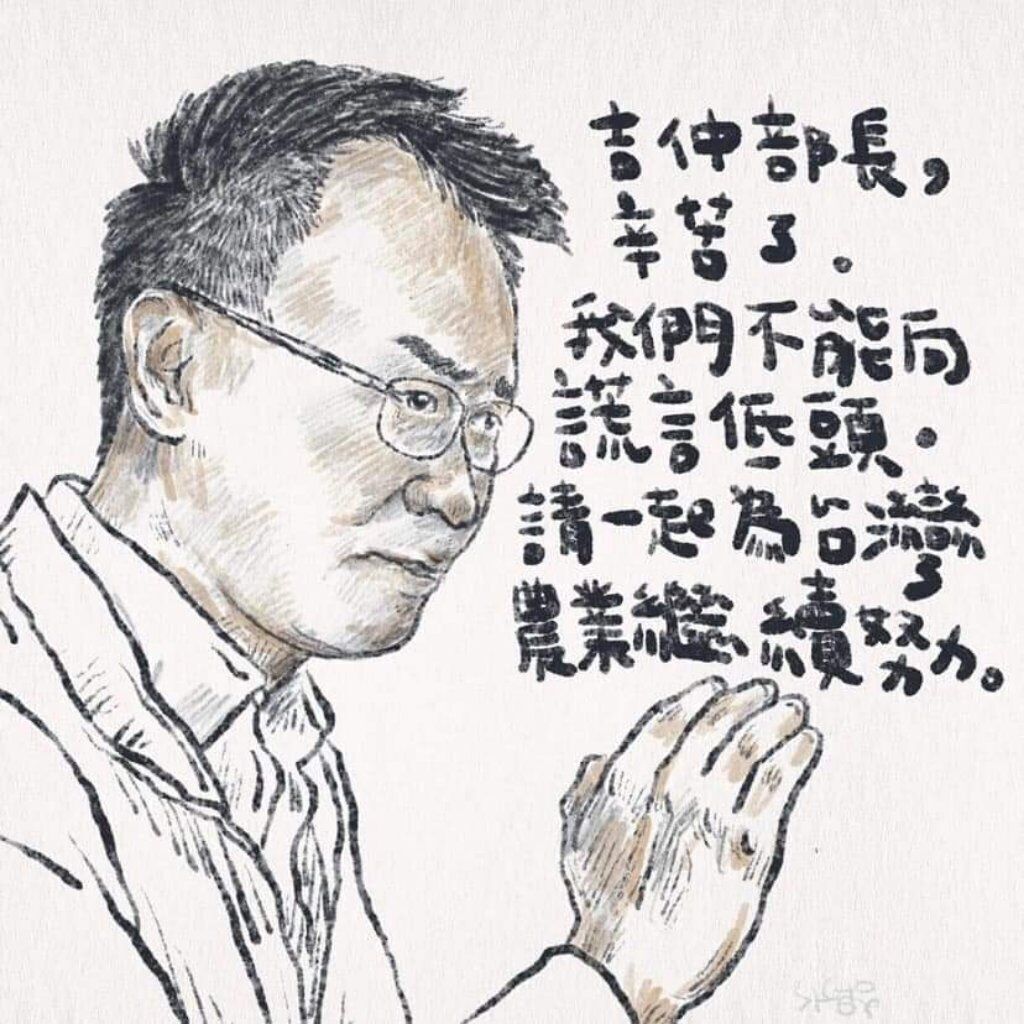 吉仲部長，
辛苦了．
我們不能向
謊言低頭．
請一起為台灣
農業繼續努力。